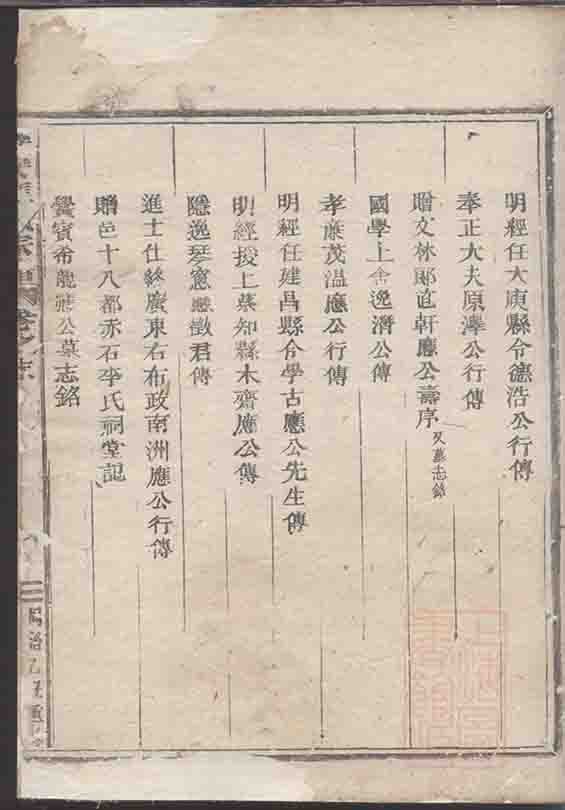 明經任大庾縣令德浩公行傳
奉正大夫原澤公行傳
贈文林郎直軒應公壽序 又墓志銘
國學上舍逸濟公傳
孝廉茂溫應公行傳
明經任建昌縣令學古應公先生傳
明經授上蔡知縣木齋應公傳
隱逸琴窻應徵君傳
進士仕終廣東右布政南洲應公行傳
贈邑十八都赤石李氏祠堂記
賓希龍蔣公墓志銘